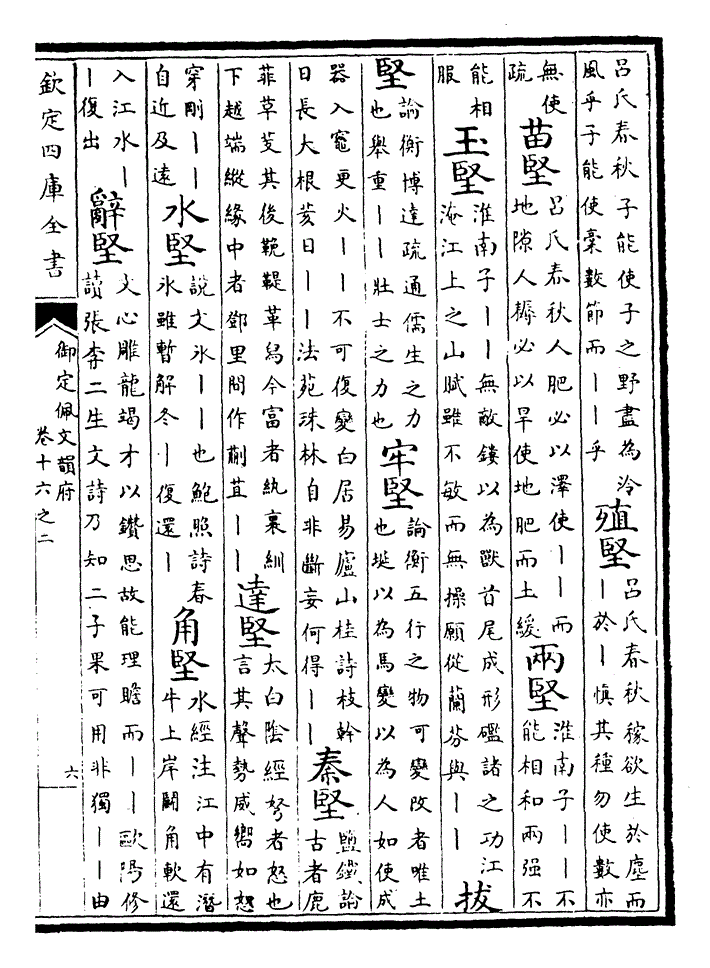 呂氏春秋子能使子之野盡為泠風乎子能使藁數節而丨丨乎 殖堅 呂氏春秋稼欲生於塵而丨於丨慎其種勿使數亦
無使疏 苗堅 呂氏春秋人肥必以澤使丨丨而地隙人耨必以旱使地肥而土緩 兩堅 淮南子丨丨不能相和兩强不
能相服 玉堅 淮南子丨丨無敵鏤以為獸首尾成形礛諸之功江淹江上之山賦雖不敏而無操願從蘭芬與丨丨 拔
堅 論衡博達疏通儒生之力也舉重丨丨壯士之力也 牢堅 論衡五行之物可變改者唯土也埏以為馬變以為人如使成
器入竈更火丨丨不可復變白居易廬山桂詩枝幹日長大根荄日丨丨法苑珠林自非斷妄何得丨丨 秦堅 鹽鐵論古者鹿
菲草芰其後鞔鞮革舄今富者紈裏紃下越端縱緣中者鄧里間作蒯苴丨丨 達堅 太白陰經弩者怒也言其聲勢威嚮如怒
穿剛丨丨自近及遠 水堅 說文氷丨丨也鮑照詩春氷雖暫解冬丨復還丨 角堅 水經注江中有潛牛上岸鬬角軟還
入江水丨丨復出 辭堅 文心雕龍竭才以鑽思故能理贍而丨丨歐陽修讀張李二生文詩乃知二子果可用非獨丨丨由
欽定四庫全書
御定佩文韻府
卷十六之二
六